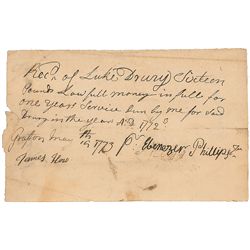 Recd of Luke Drury Sixteen
Pounds Lawfull money in full for
one year Service Dun by me for sd
Drury in the year AD 1772
Grafton May 19th 1773 Pr Ebenezer Phillips Jr
James